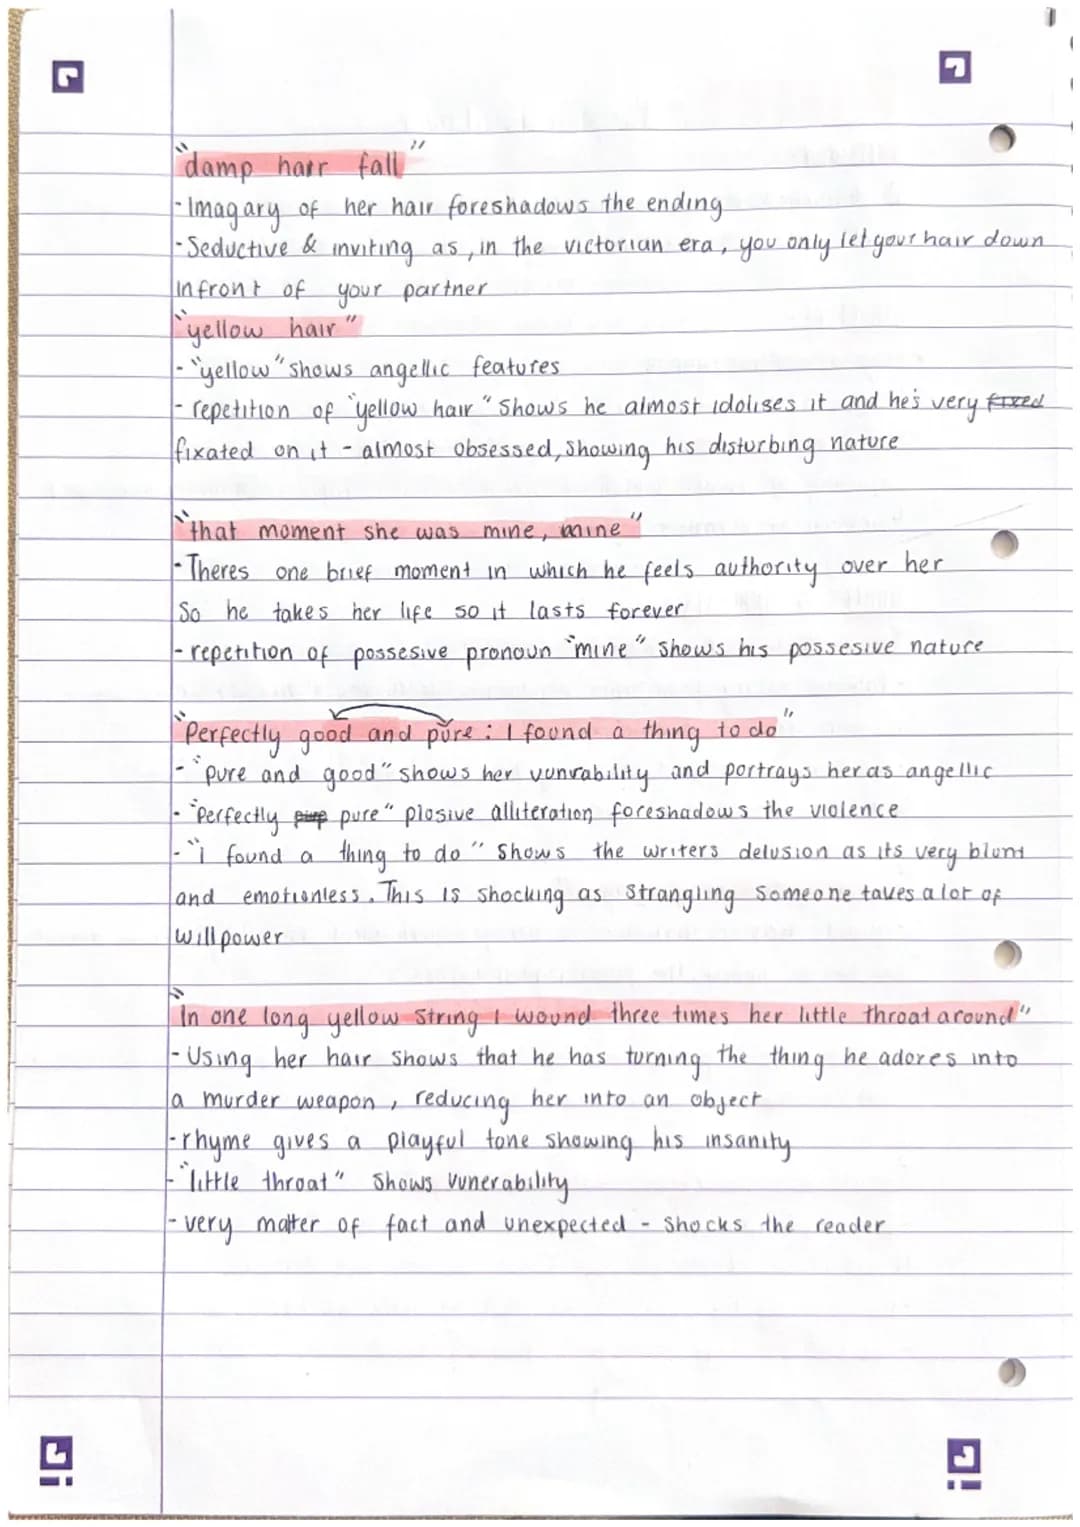 "damp hair fall"
- Imagary of her hair foreshadows the ending
- Seductive & inviting as, in the victorian era, you only let your hair down
infront of your partner
"yellow hair"
- "yellow" shows angellic features
- repetition of "yellow hair" shows he almost idolises it and he's very fixed
fixated on it - almost obsessed, showing his disturbing nature
"that moment she was mine, mine"
- Theres one brief moment in which he feels authority over her
So he takes her life so it lasts forever
- repetition of possesive pronoun "mine" shows his possesive nature
"Perfectly good and pure: I found a thing to do"
- "pure and good" shows her vunrability and portrays her as angellic
- "Perfectly pure" plosive alliteration foreshadows the violence
- "i found a thing to do" Shows the writers delusion as its very blunt
and emotionless. This is shocking as strangling someone takes a lot of
willpower
"In one long yellow string I wound three times her little throat around"
- Using her hair shows that he has turning the thing he adores into
a murder weapon, reducing her into an object
- rhyme gives a playful tone showing his insanity
- "little throat" shows vunerability
- very matter of fact and unexpected - shocks the reader